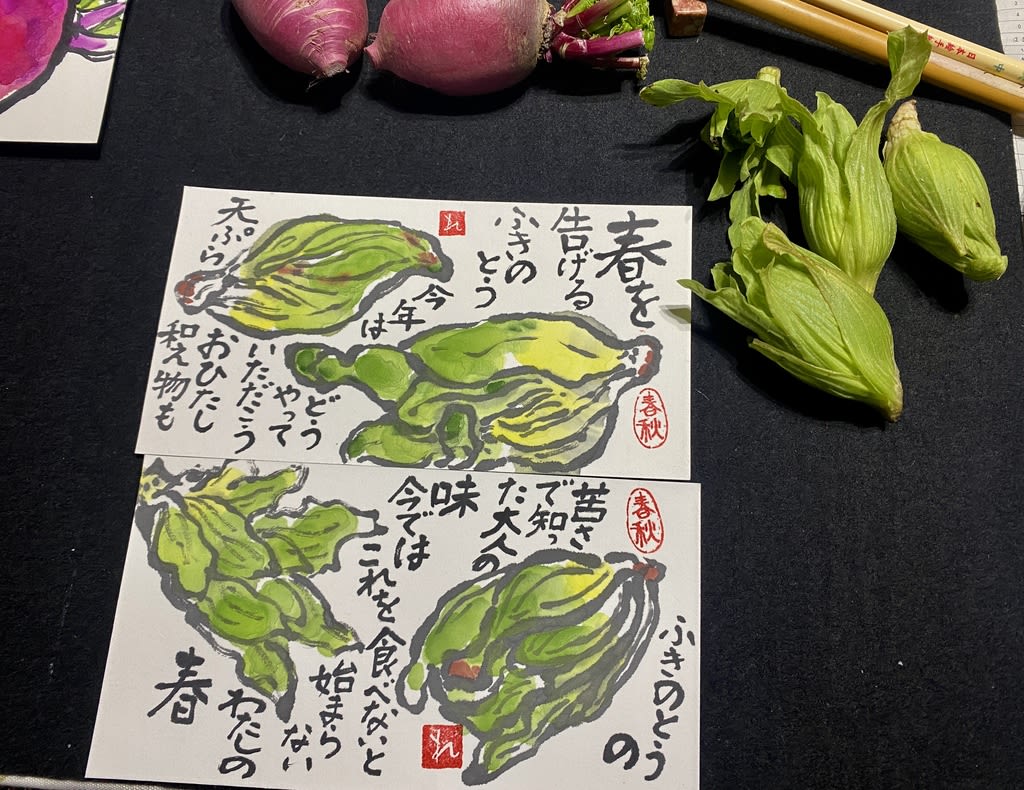 春を
告げる
ふきの
とう
今
年
は
どう
やって
いただこう
天ぷら
おひたし
和え物も
春秋
ふきのとう
の
苦さ
で知っ
た大人の
味
今では
これを食べないと
始まら
ない
わたしの
春
春秋